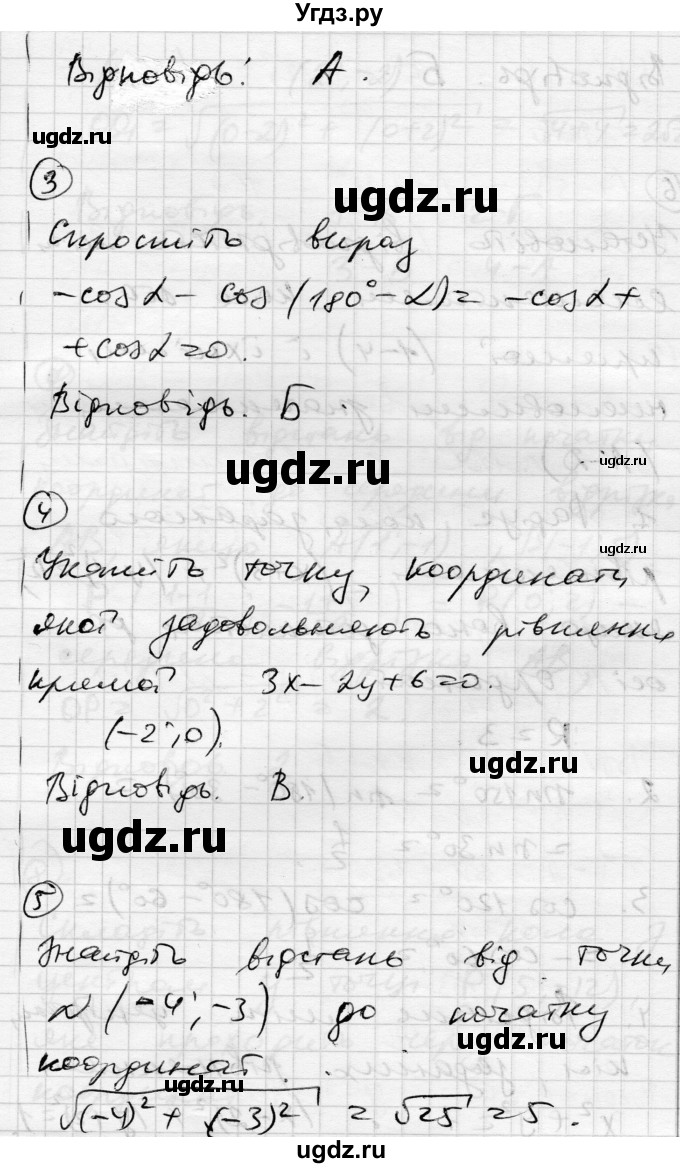 Угдз.ру
Відповідь: А.
ugdz.ru
3
ugdz.ru
Спростіть вираз
-cos α - cos (180° - α) = -cos α +
+ cos α = 0.
Відповідь. Б.
ugdz.ru
ugdz.ru
4
Укажіть точку, координати
ugdz.ru
якої задовольняють рівняння
прямої 3x - 2y + 6 = 0.
(-2; 0).
Відповідь. В.
ugdz.ru
5
Знайдіть відстань від точки
N (-4; -3) до початку
координат.
√(-4)² + (-3)² = √25 = 5.
ugdz.ru